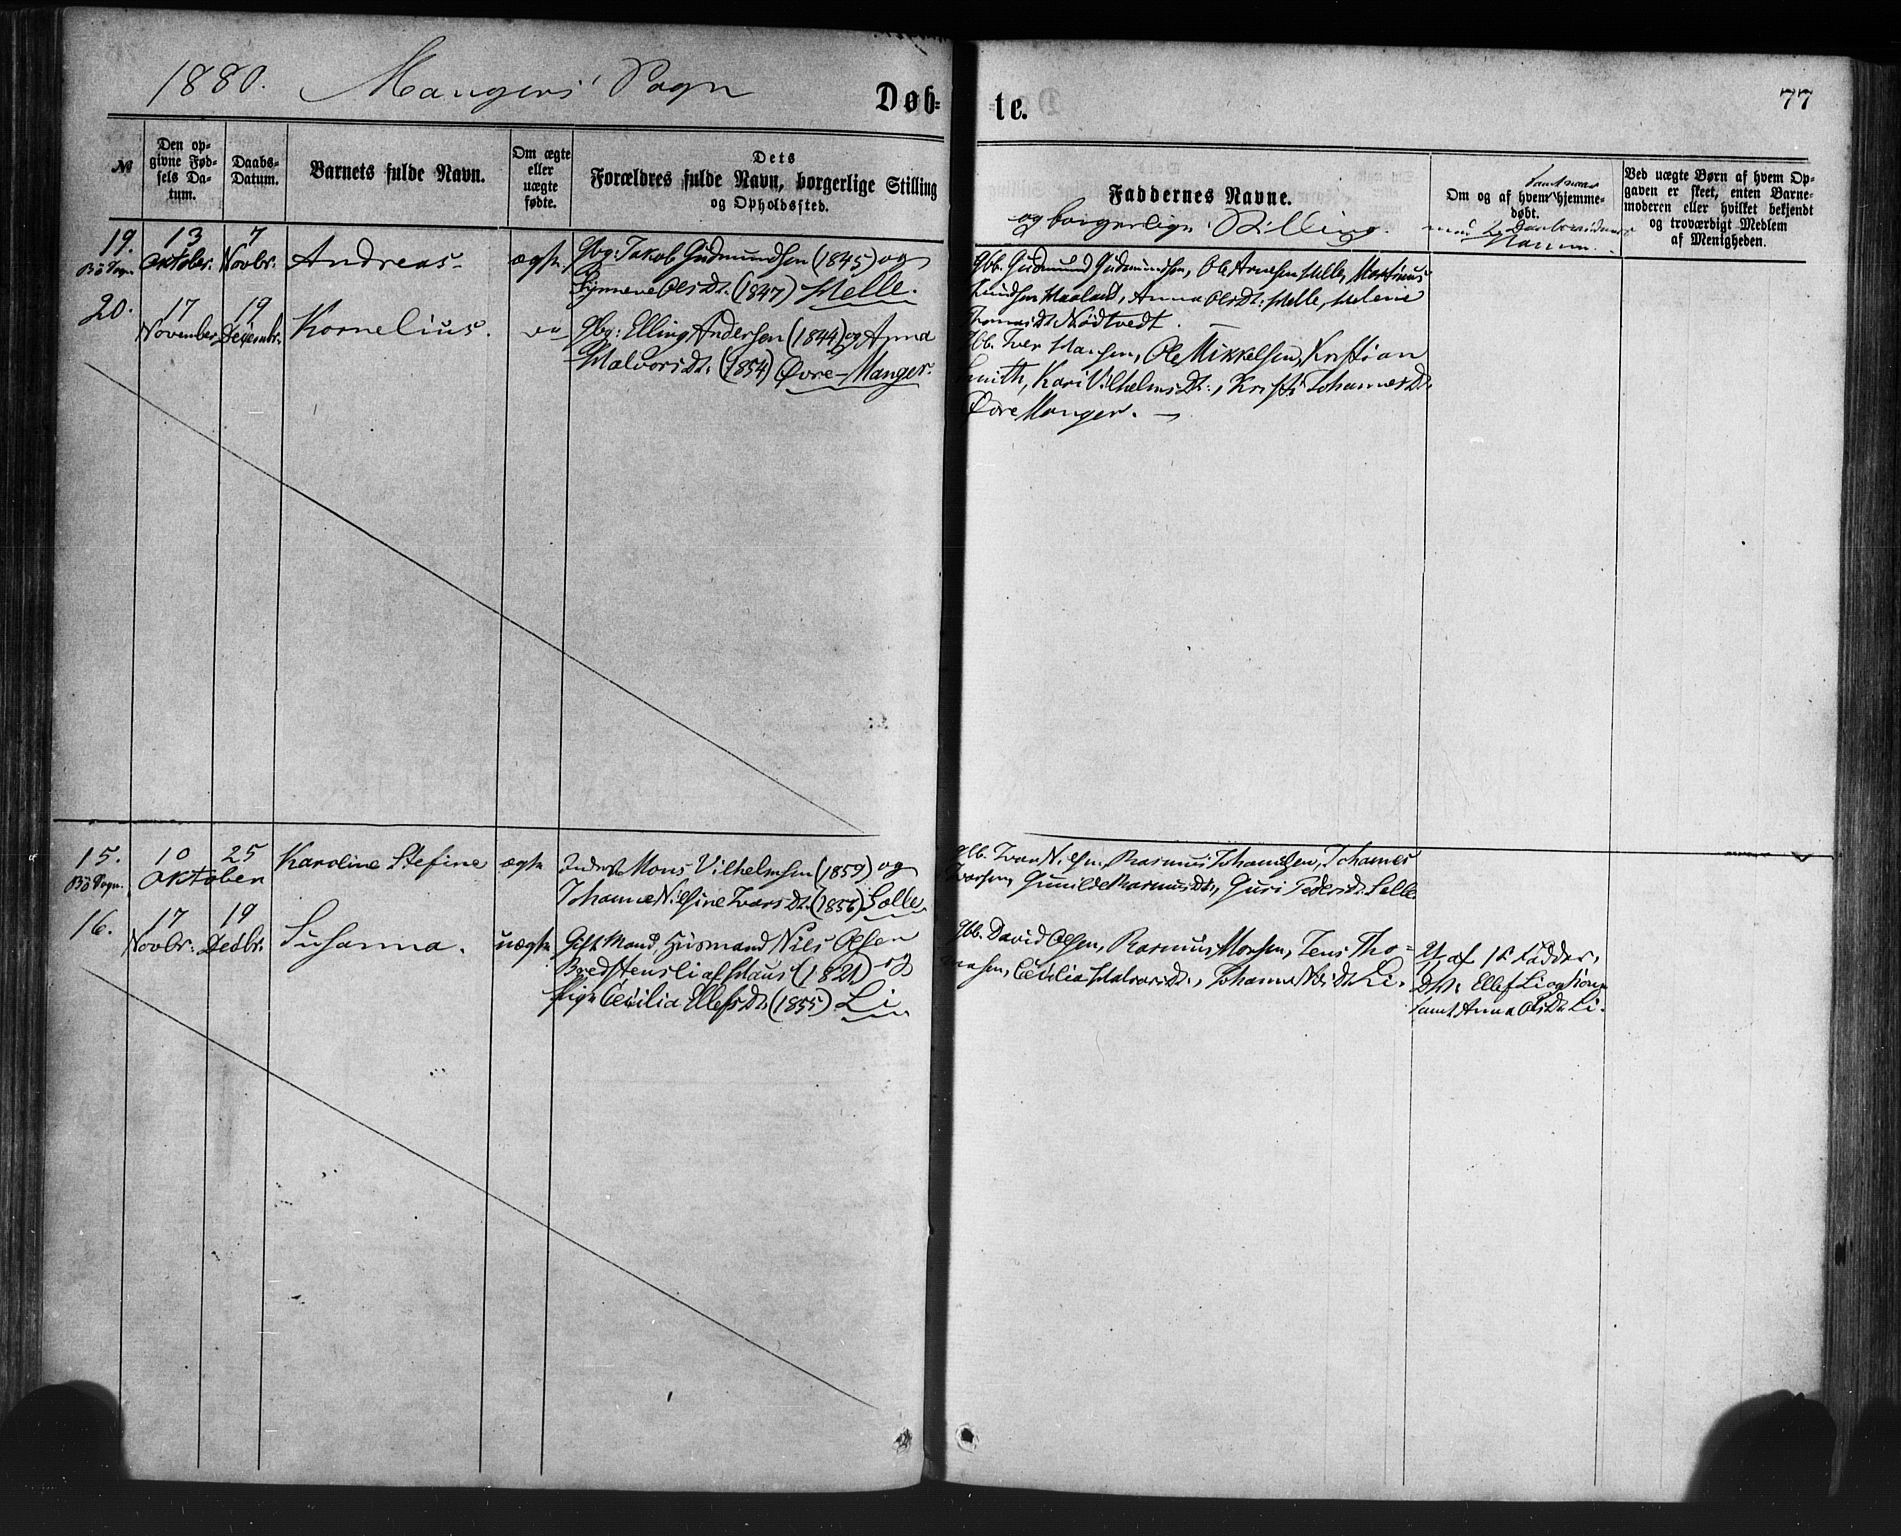 1880. Mangers Sogn
Døb-
te.
77
№
Den opgivne Fødsels Datum.
Daabs-Datum.
Barnets fulde Navn.
Om ægte eller uægte fødte.
Dets Forældres fulde Navn, borgerlige Stilling og Opholdssted.
Faddernes Navne.
og borgerlige Stilling.
Om og af hvem hjemmedøbt.
Ved uægte Børn af hvem Opgaven er skeet, enten Barnemoderen eller hvilket bekjendt og troværdigt Medlem af Menigheden.
19. 13 7
Bø Sogn. Oktober. Novbr. Andreas. ægte Gbg: Jakob Gudmundsen (1845) og
Synneve Olsdt. (1847) Helle.
Gbb. Gudmund Gudmundsen, Ole Arnesen Helle, Martinus
Knudsen Haaland, Anna Olsdt. Helle, Helene
Thomasdt Nødtvedt.
20. 17 19
November Decembr. Kornelius. Gbg: Elling Andersen (1844) og Anna
Halvorsdt. (1854) Øvre-Manger.
Gbb. Iver Hansen, Ole Mikkelsen, Kristian
Smith, Kari Vilhelmsdt., Kristi Johannesdt
Øvre Manger.
15. 10 25
Bø Sogn. Oktober Karoline Stefine ægte Inderst Mons Vilhelmsen (1859) og
Johanne Nilsine Ivarsdt. (1856) Sælle
Gbb. Ivar Nilsen, Rasmus Johansen, Johannes
Ivarsen, Gunilde Rasmusdt, Guri Pedersdt Sælle
16. 17 19
Novbr. Decbr. Susanna. uægte Gift Mand, Husmand Nils Olsen
Bredstensli af Haus (1821) og
Pige Cecilia Ellefsdt. (1855) Li
Gbb. David Olsen, Rasmus Monsen, Jens Thomassen, Cecilia Halvorsdt., Johanna Nilsdt Li.
Hj. af 1e Fadder,
Dv. Ellef Li og Kone
samt Anna Olsdt. Li.